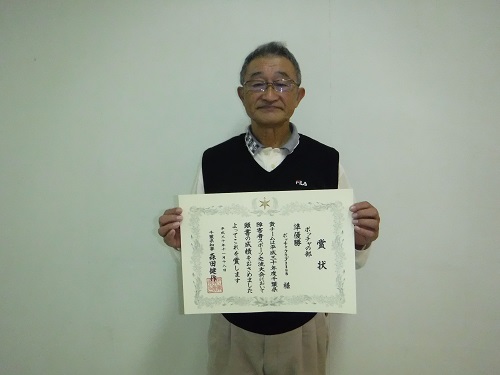 賞状
ボッチャの部
準優勝
様
貴チームは平成三十年度千葉県
障害者スポーツ交流大会において
頭書の成績をおさめました
よってこれを賞します
千葉県知事 森田健作
FILA